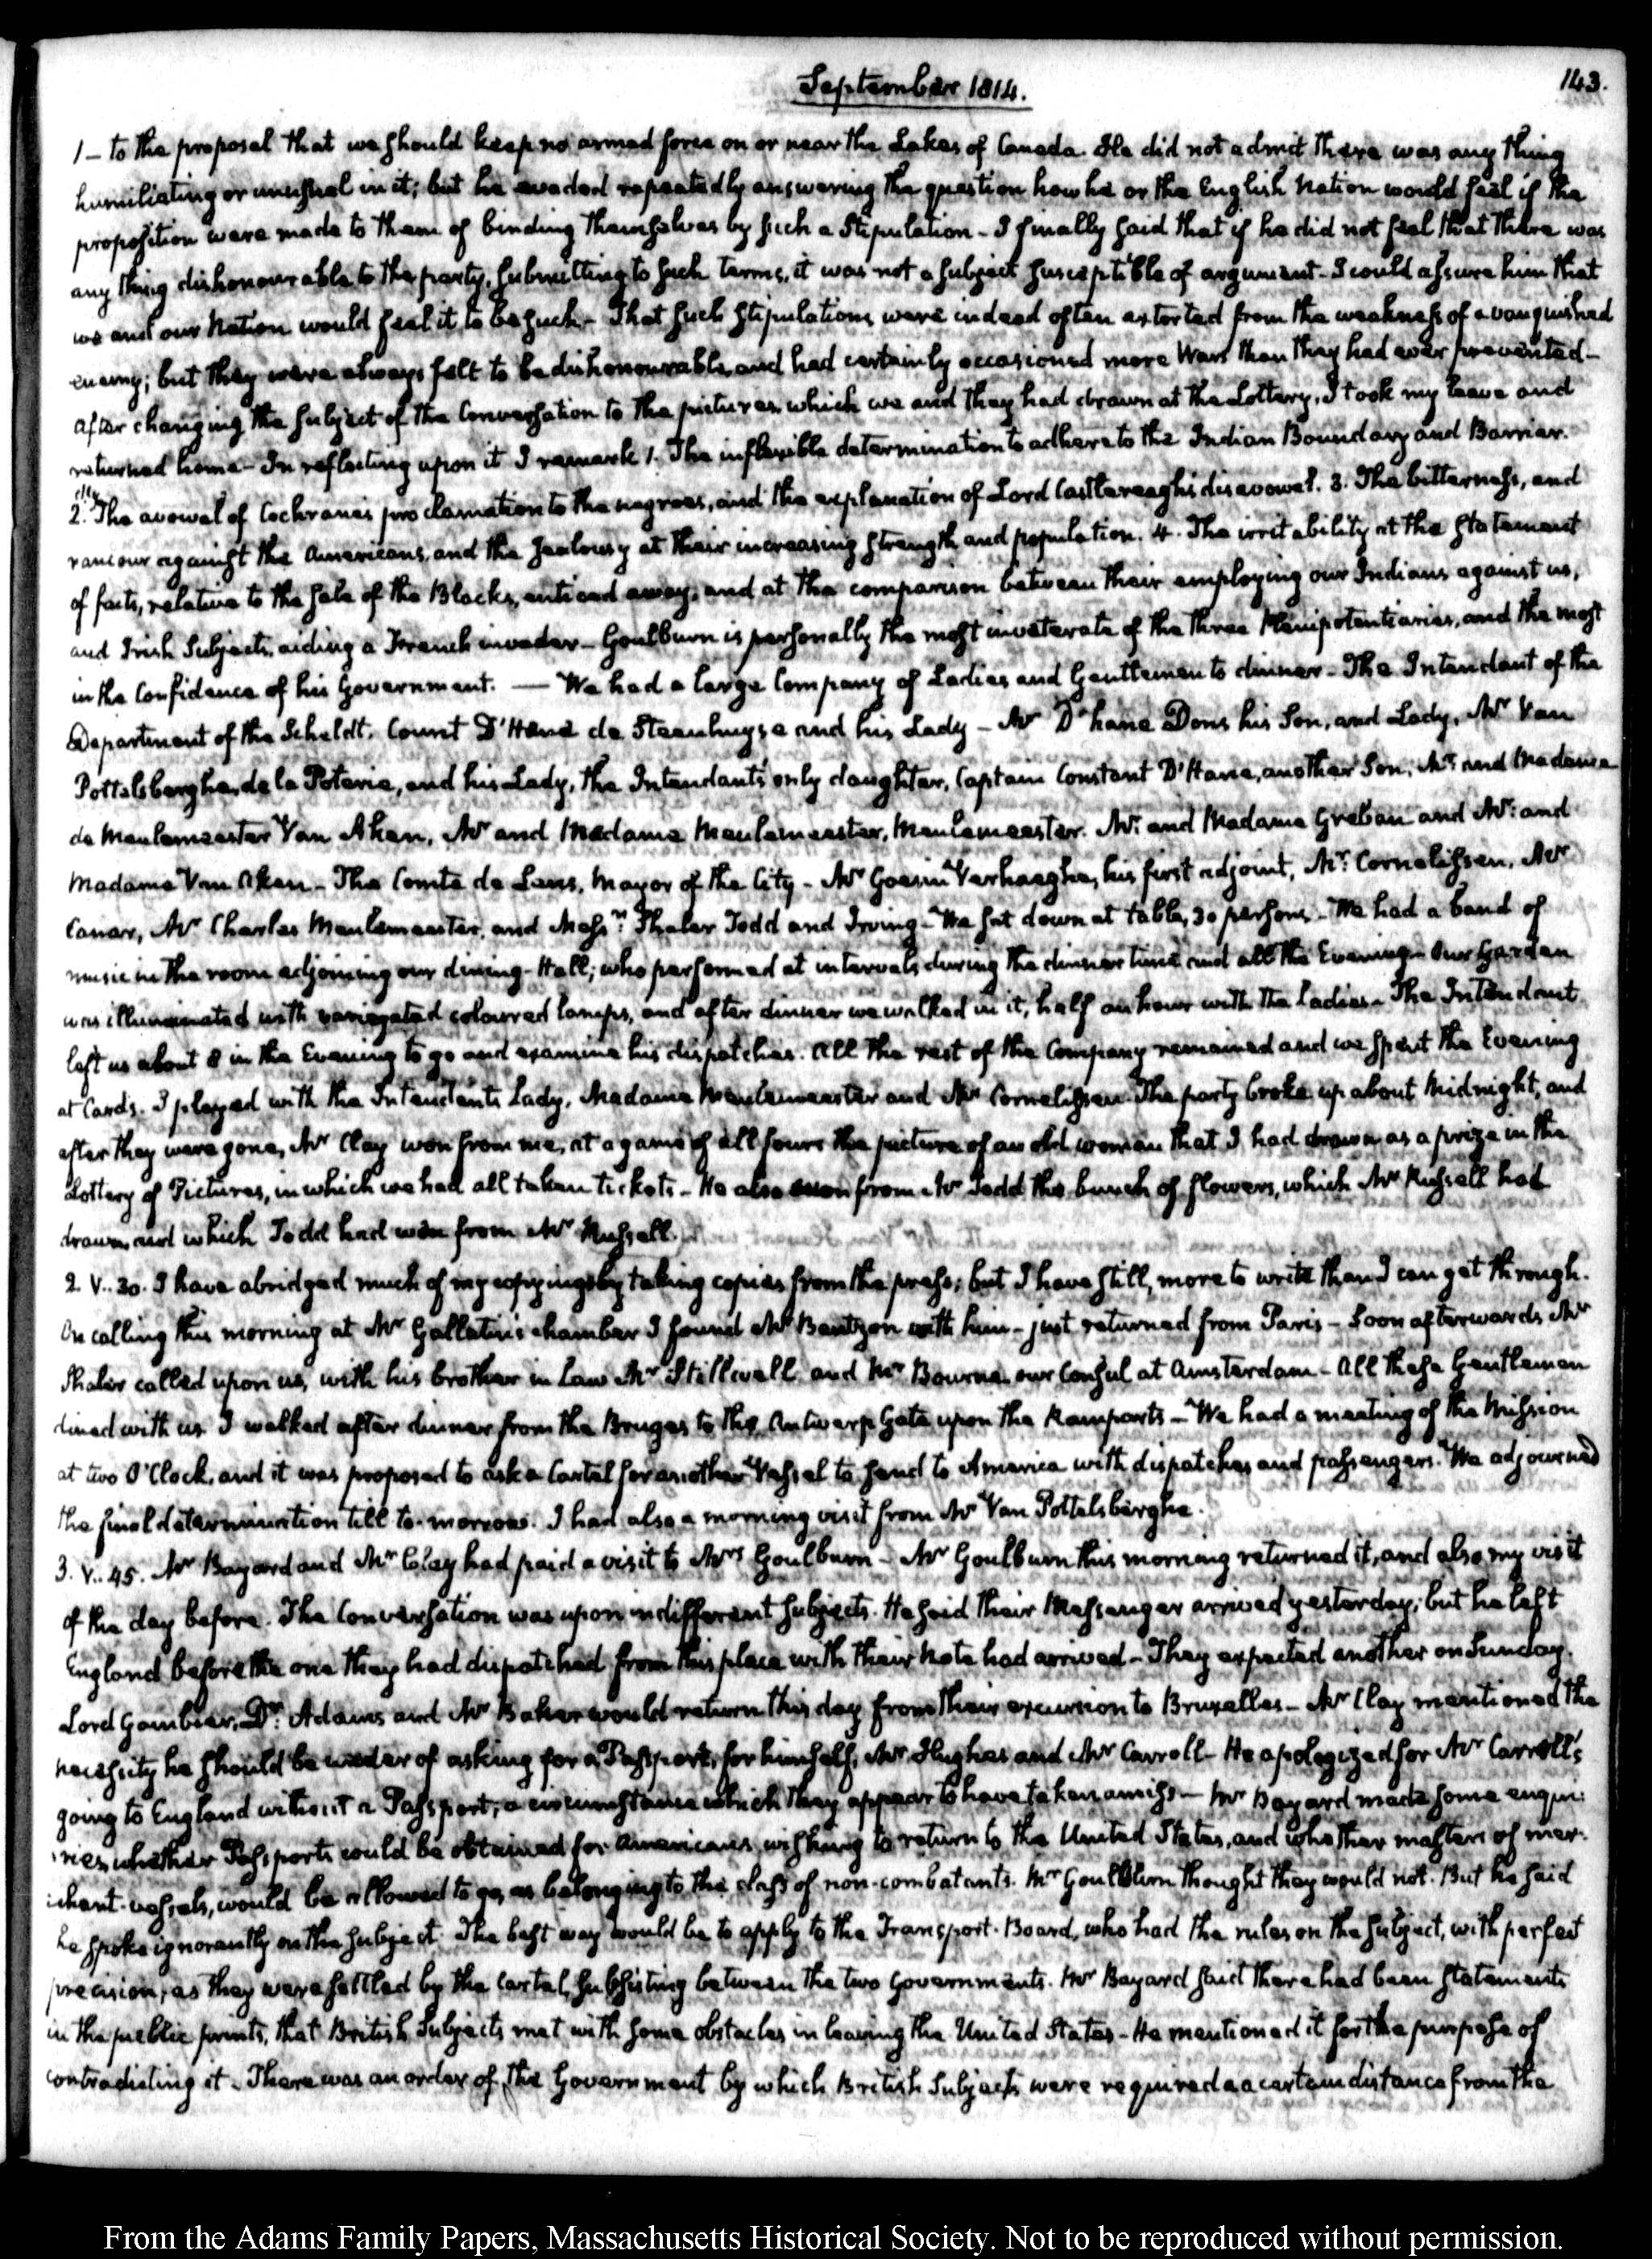 September 1814.
143.
1 — to the proposal that we should keep no armed force on or near the Lakes of Canada. He did not admit there was any thing
humiliating or unusual in it; but he evaded repeatedly answering the question how he or the English Nation would feel if the
proposition were made to them of binding themselves by such a Stipulation — I finally said that if he did not feel that there was
any thing dishonourable to the party, submitting to such terms, it was not a subject susceptible of argument — I could assure him that
we and our Nation would feel it to be such — That such stipulations were indeed often extorted from the weakness of a vanquished
enemy; but they were always felt to be dishonourable, and had certainly occasioned more Wars than they had ever prevented —
After changing the subject of the Conversation to the pictures which we and they had drawn at the Lottery, I took my leave and
returned home — In reflecting upon it I remark 1. The inflexible determination to adhere to the Indian Boundary and Barrier.
2.dly The avowal of Cochrane's proclamation to the negroes, and the explanation of Lord Castlereagh's disavowal. 3. The bitterness, and
rancour against the Americans, and the jealousy at their increasing strength and population. 4. The irritability at the statement
of facts, relative to the sale of the Blacks, enticed away, and at the comparison between their employing our Indians against us,
and Irish Subjects, aiding a French invader — Goulburn is personally the most inveterate of the three Plenipotentiaries, and the most
in the Confidence of his Government. — We had a large Company of Ladies and Gentlemen to dinner — The Intendant of the
Department of the Scheldt, Count D'Hane de Steenhuyse and his Lady — Mr D'hane Dons his Son, and Lady, Mr Van
Pottelsberghe, de la Poterie, and his Lady, the Intendant's only daughter, Captain Constant D'Hane, another Son; Mr. and Madame
de Meulemeester Van Aken, Mr and Madame Meulemeester, Meulemeester. Mr. and Madame Greban and Mr. and
Madame Van Aken — The Comte de Lens, Mayor of the City — Mr Goesin Verhaeghe, his first adjoint, Mr. Cornelissen, Mr
Canar, Mr Charles Meulemeester, and Messrs. Shaler Todd and Irving — We sat down at table, 30 persons — We had a band of
music in the room adjoining our dining-Hall; who performed at intervals during the dinner time and all the Evening — Our Garden
was illuminated with variegated coloured lamps, and after dinner we walked in it, half an hour with the ladies — The Intendant
left us about 8 in the Evening to go and examine his dispatches. All the rest of the Company remained and we spent the Evening
at Cards. I played with the Intendant's Lady, Madame Meulemeester and Mr Cornelissen. The party broke up about Midnight, and
after they were gone, Mr Clay won from me, at a game of all fours the picture of an old woman that I had drawn as a prize in the
Lottery of Pictures, in which we had all taken tickets — He also won from Mr Todd the bunch of flowers, which Mr Russell had
drawn, and which Todd had won from Mr Russell.
2. V..30. I have abridged much of my copyings by taking copies from the press; but I have still, more to write than I can get through.
On calling this morning at Mr Gallatin's chamber I found Mr Bentzon with him — just returned from Paris — Soon afterwards Mr
Shaler called upon us, with his brother in law Mr Stillwell and Mr Bourne, our Consul at Amsterdam — All these Gentlemen
dined with us. I walked after dinner from the Bruges to the Antwerp Gate upon the Ramparts — We had a meeting of the Mission
at two O'Clock, and it was proposed to ask a Cartel for another Vessel to send to America with dispatches and passengers. We adjourned
the final determination till to-morrow. I had also a morning visit from Mr Van Pottelsberghe.
3. V..45. Mr Bayard and Mr Clay had paid a visit to Mrs Goulburn — Mr Goulburn this morning returned it, and also my visit
of the day before. The Conversation was upon indifferent subjects. He said their Messenger arrived yesterday; but he left
England before the one they had dispatched from this place with their Note had arrived — They expected another on Sunday.
Lord Gambier, Dr. Adams and Mr Baker would return this day from their excursion to Bruxelles — Mr Clay mentioned the
necessity he should be under of asking for a Passport, for himself, Mr Hughes and Mr Carroll — He apologized for Mr Carroll's
going to England without a Passport; a circumstance which they appear to have taken amiss — Mr Bayard made some enqui:
:ries, whether Passports could be obtained for Americans wishing to return to the United States, and whether masters of mer:
:chant-vessels, would be allowed to go, as belonging to the class of non-combatants. Mr Goulburn thought they would not. But he said
he spoke ignorantly on the subject. The best way would be to apply to the Transport-Board, who had the rules on the subject, with perfect
precision, as they were settled by the Cartel, subsisting between the two Governments. Mr Bayard said there had been statements
in the public prints, that British Subjects met with some obstacles in leaving the United States — He mentioned it for the purpose of
contradicting it — There was an order of the Government by which British Subjects were required a certain distance from the
From the Adams Family Papers, Massachusetts Historical Society. Not to be reproduced without permission.